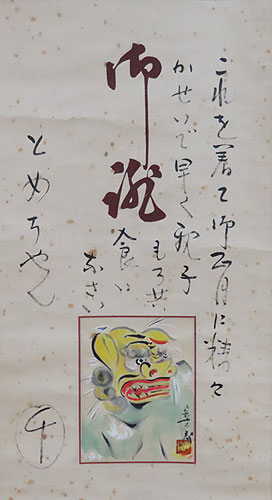 これを着て御正月に精々
かせいで早く親子
もろ共
食い
なさい
御誂
とめちやん
千